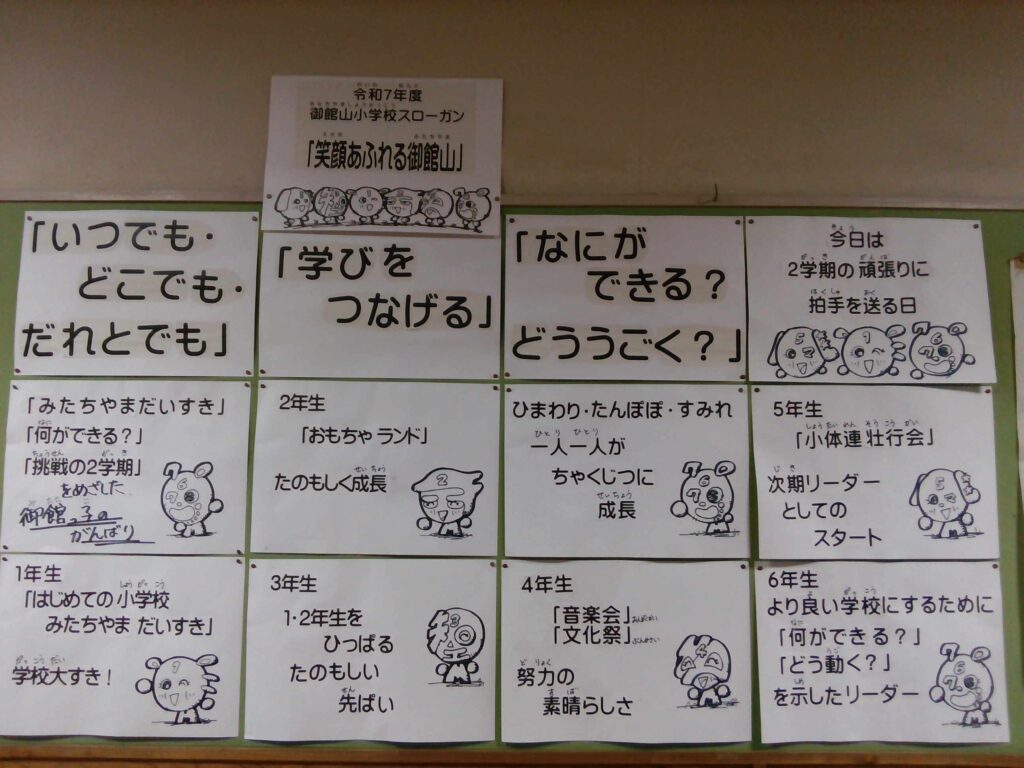 令和7年度
御館山小学校スローガン
「笑顔あふれる御館山」
「いつでも・
どこでも・
だれとでも」
「学びを
つなげる」
「なにが
できる？
どううごく？」
今日は
2学期の頑張りに
拍手を送る日
「みたちやまだいすき」
「何ができる？」
「挑戦の2学期」
をめざした
御館っ子の
がんばり
2年生
「おもちゃランド」
たのもしく成長
ひまわり・たんぽぽ・すみれ
一人一人が
ちゃくじつに
成長
5年生
「小体連壮行会」
次期リーダー
としての
スタート
1年生
「はじめての小学校
みたちやまだいすき」
学校大すき！
3年生
1・2年生を
ひっぱる
たのもしい
先ぱい
4年生
「音楽会」
「文化祭」
努力の
素晴らしさ
6年生
より良い学校にするために
「何ができる？」
「どう動く？」
を示したリーダー